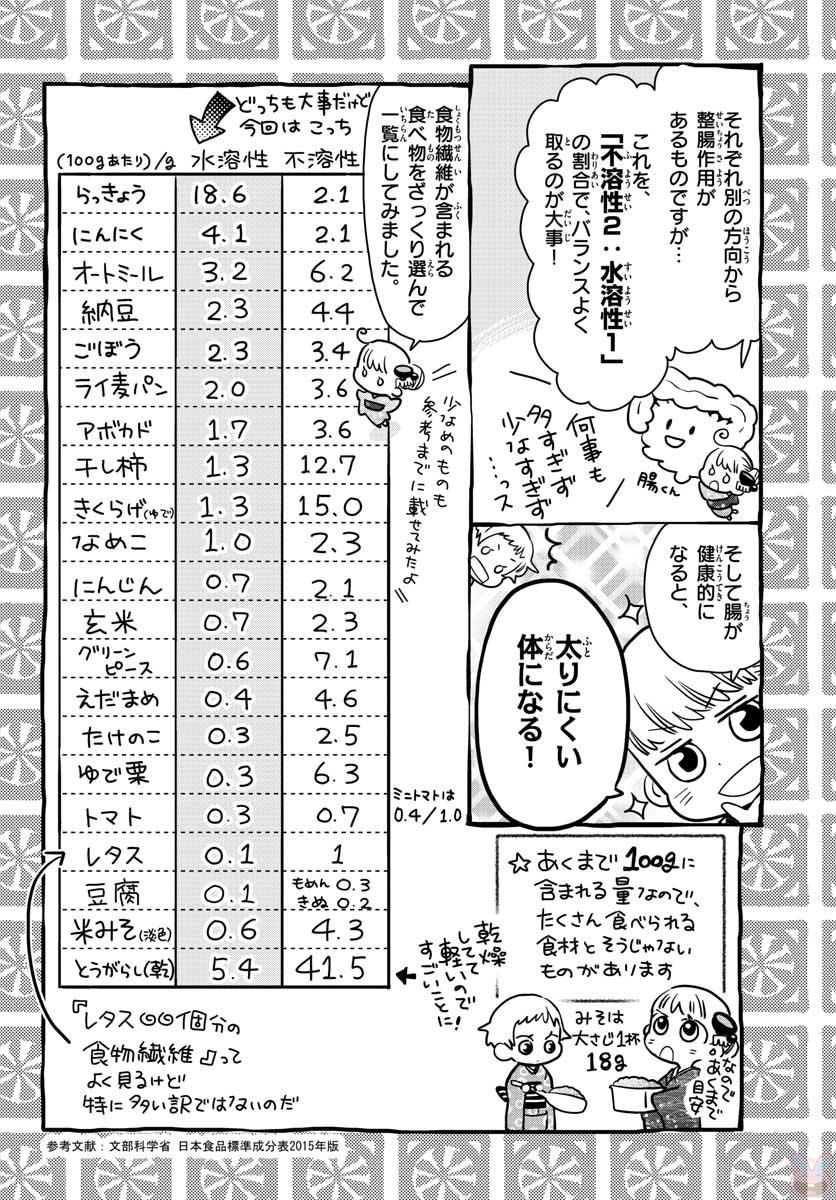 それぞれ別の方向から
整腸作用が
あるものですが…
これを、
「不溶性2：水溶性1」
の割合で、バランスよく
取るのが大事！
腸くん
何事も
多すぎず
少なすぎず
…っス
そして腸が
健康的に
なると、
太りにくい
体になる！
食物繊維が含まれる
食べ物をざっくり選んで
一覧にしてみました。
少なめのものも
参考までに載せてみたよ
どっちも大事だけど
今回は こっち
(100gあたり)/g 水溶性 不溶性
らっきょう 18.6 2.1
にんにく 4.1 2.1
オートミール 3.2 6.2
納豆 2.3 4.4
ごぼう 2.3 3.4
ライ麦パン 2.0 3.6
アボカド 1.7 3.6
干し柿 1.3 12.7
きくらげ(ゆで) 1.3 15.0
なめこ 1.0 2.3
にんじん 0.7 2.1
玄米 0.7 2.3
グリーン
ピース 0.6 7.1
えだまめ 0.4 4.6
たけのこ 0.3 2.5
ゆで栗 0.3 6.3
トマト 0.3 0.7
ミニトマトは
0.4/1.0
レタス 0.1 1
豆腐 0.1 もめん 0.3
きぬ 0.2
米みそ(淡色) 0.6 4.3
とうがらし(乾) 5.4 41.5
乾燥
してて
軽いので
すごいことに！
『レタス○○個分の
食物繊維』って
よく見るけど
特に多い訳ではないのだ
☆あくまで100gに
含まれる量なので、
たくさん食べられる
食材とそうじゃない
ものがあります
みそは
大さじ1杯
18g
なので
あくまで
目安
参考文献：文部科学省 日本食品標準成分表2015年版